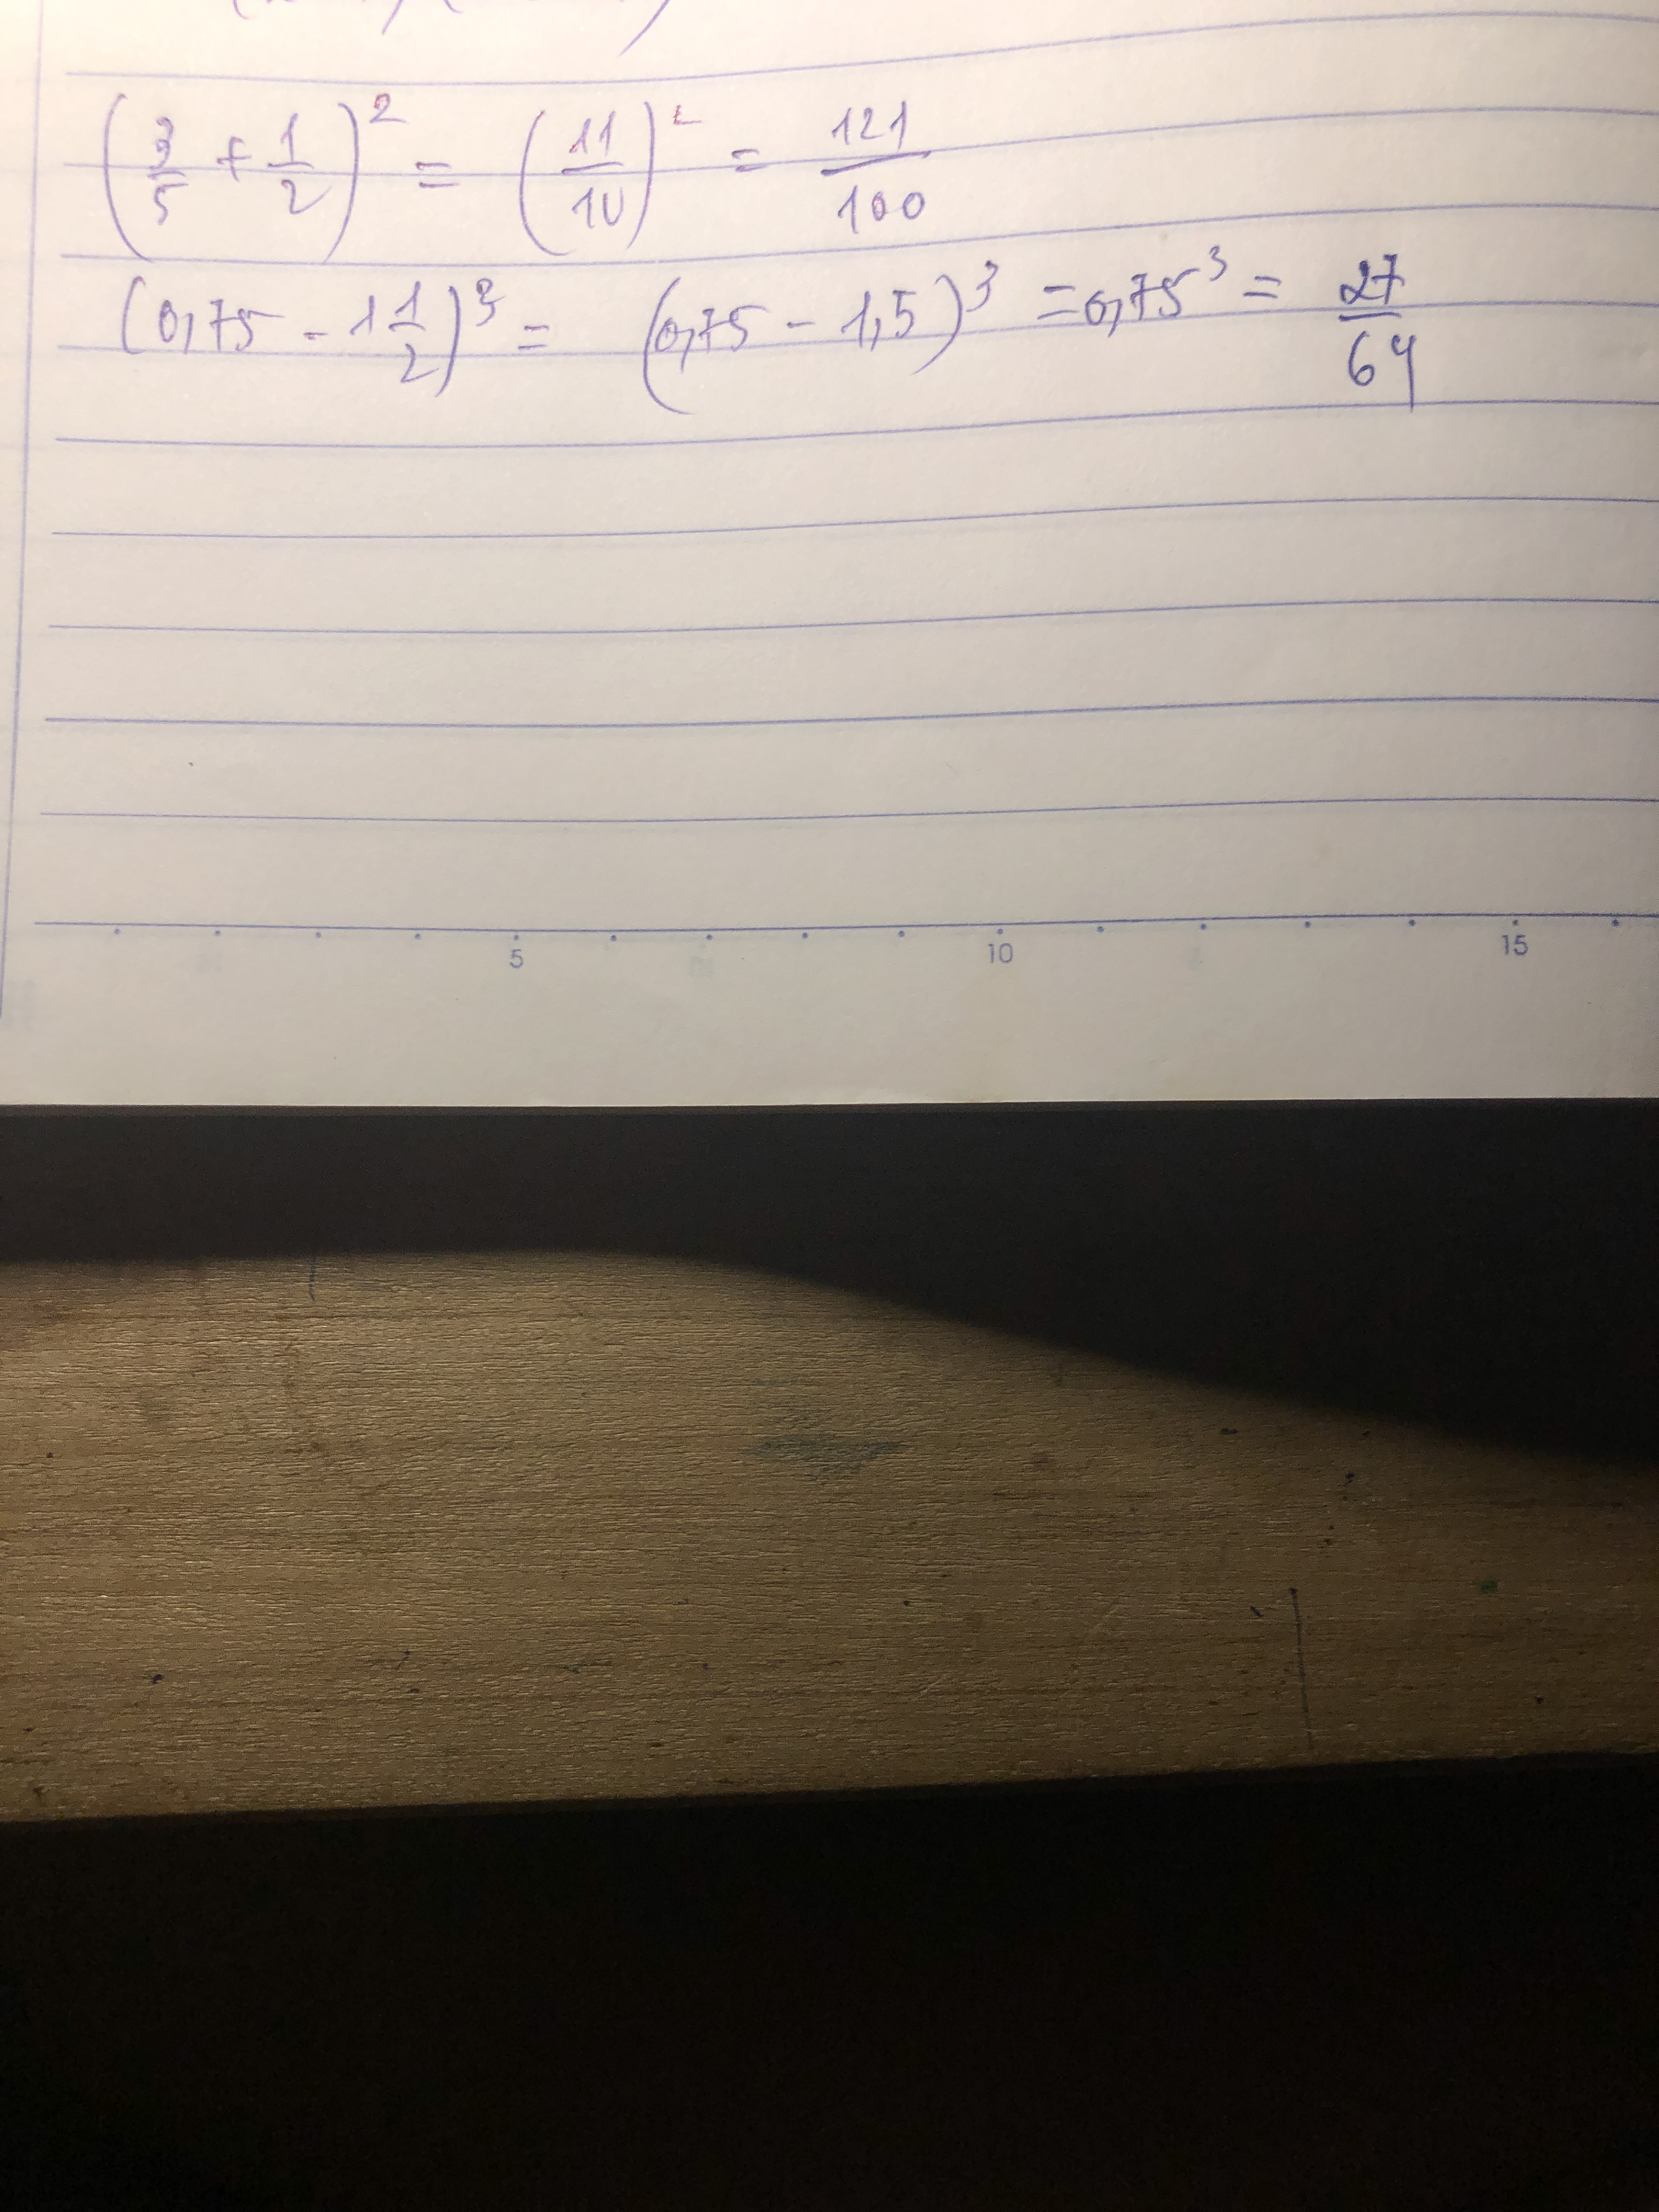 (3/5 + 1/2)² = (11/10)² = 121/100
(0,75 - 1 1/2)³ = (0,75 - 1,5)³ = 0,75³ = 27/64
5 10 15